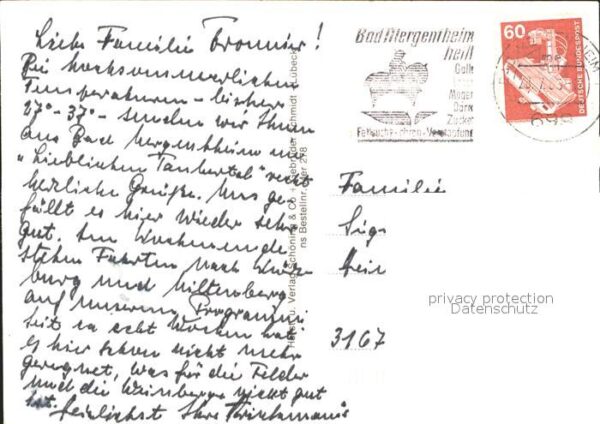 Liebe Familie Trommer!
Bei hochsommerlichen
Temperaturen – bisher
27° - 37° – senden wir Ihnen
aus Bad Mergentheim im
"Lieblichen Taubertal" recht
herzliche Grüße. Uns ge-
fällt es hier wieder sehr
gut. Am Wochenende
stehen Fahrten nach Würz-
burg und Miltenberg
auf unserem Programm.
Seit ca acht Wochen hat
es hier schon nicht mehr
geregnet, was für die Felder
und die Weinberge nicht gut
ist. Herzlichst Ihre
Verlag Schöning & Co + Gebrüder Schmidt Lübeck
Bestellnr.
Bad Mergentheim
heilt
Galle
Leber
Magen
Darm
Zucker
Fettsucht-chron-Verstopfung
60
DEUTSCHE BUNDESPOST
Familie
3167
privacy protection
Datenschutz